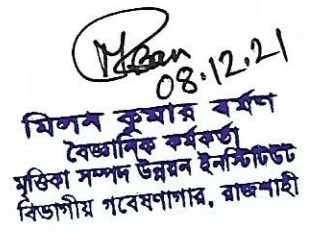 08.12.21
মিলন কুমার বর্মণ
বৈজ্ঞানিক কর্মকর্তা
মৃত্তিকা সম্পদ উন্নয়ন ইনস্টিটিউট
বিভাগীয় গবেষণাগার, রাজশাহী